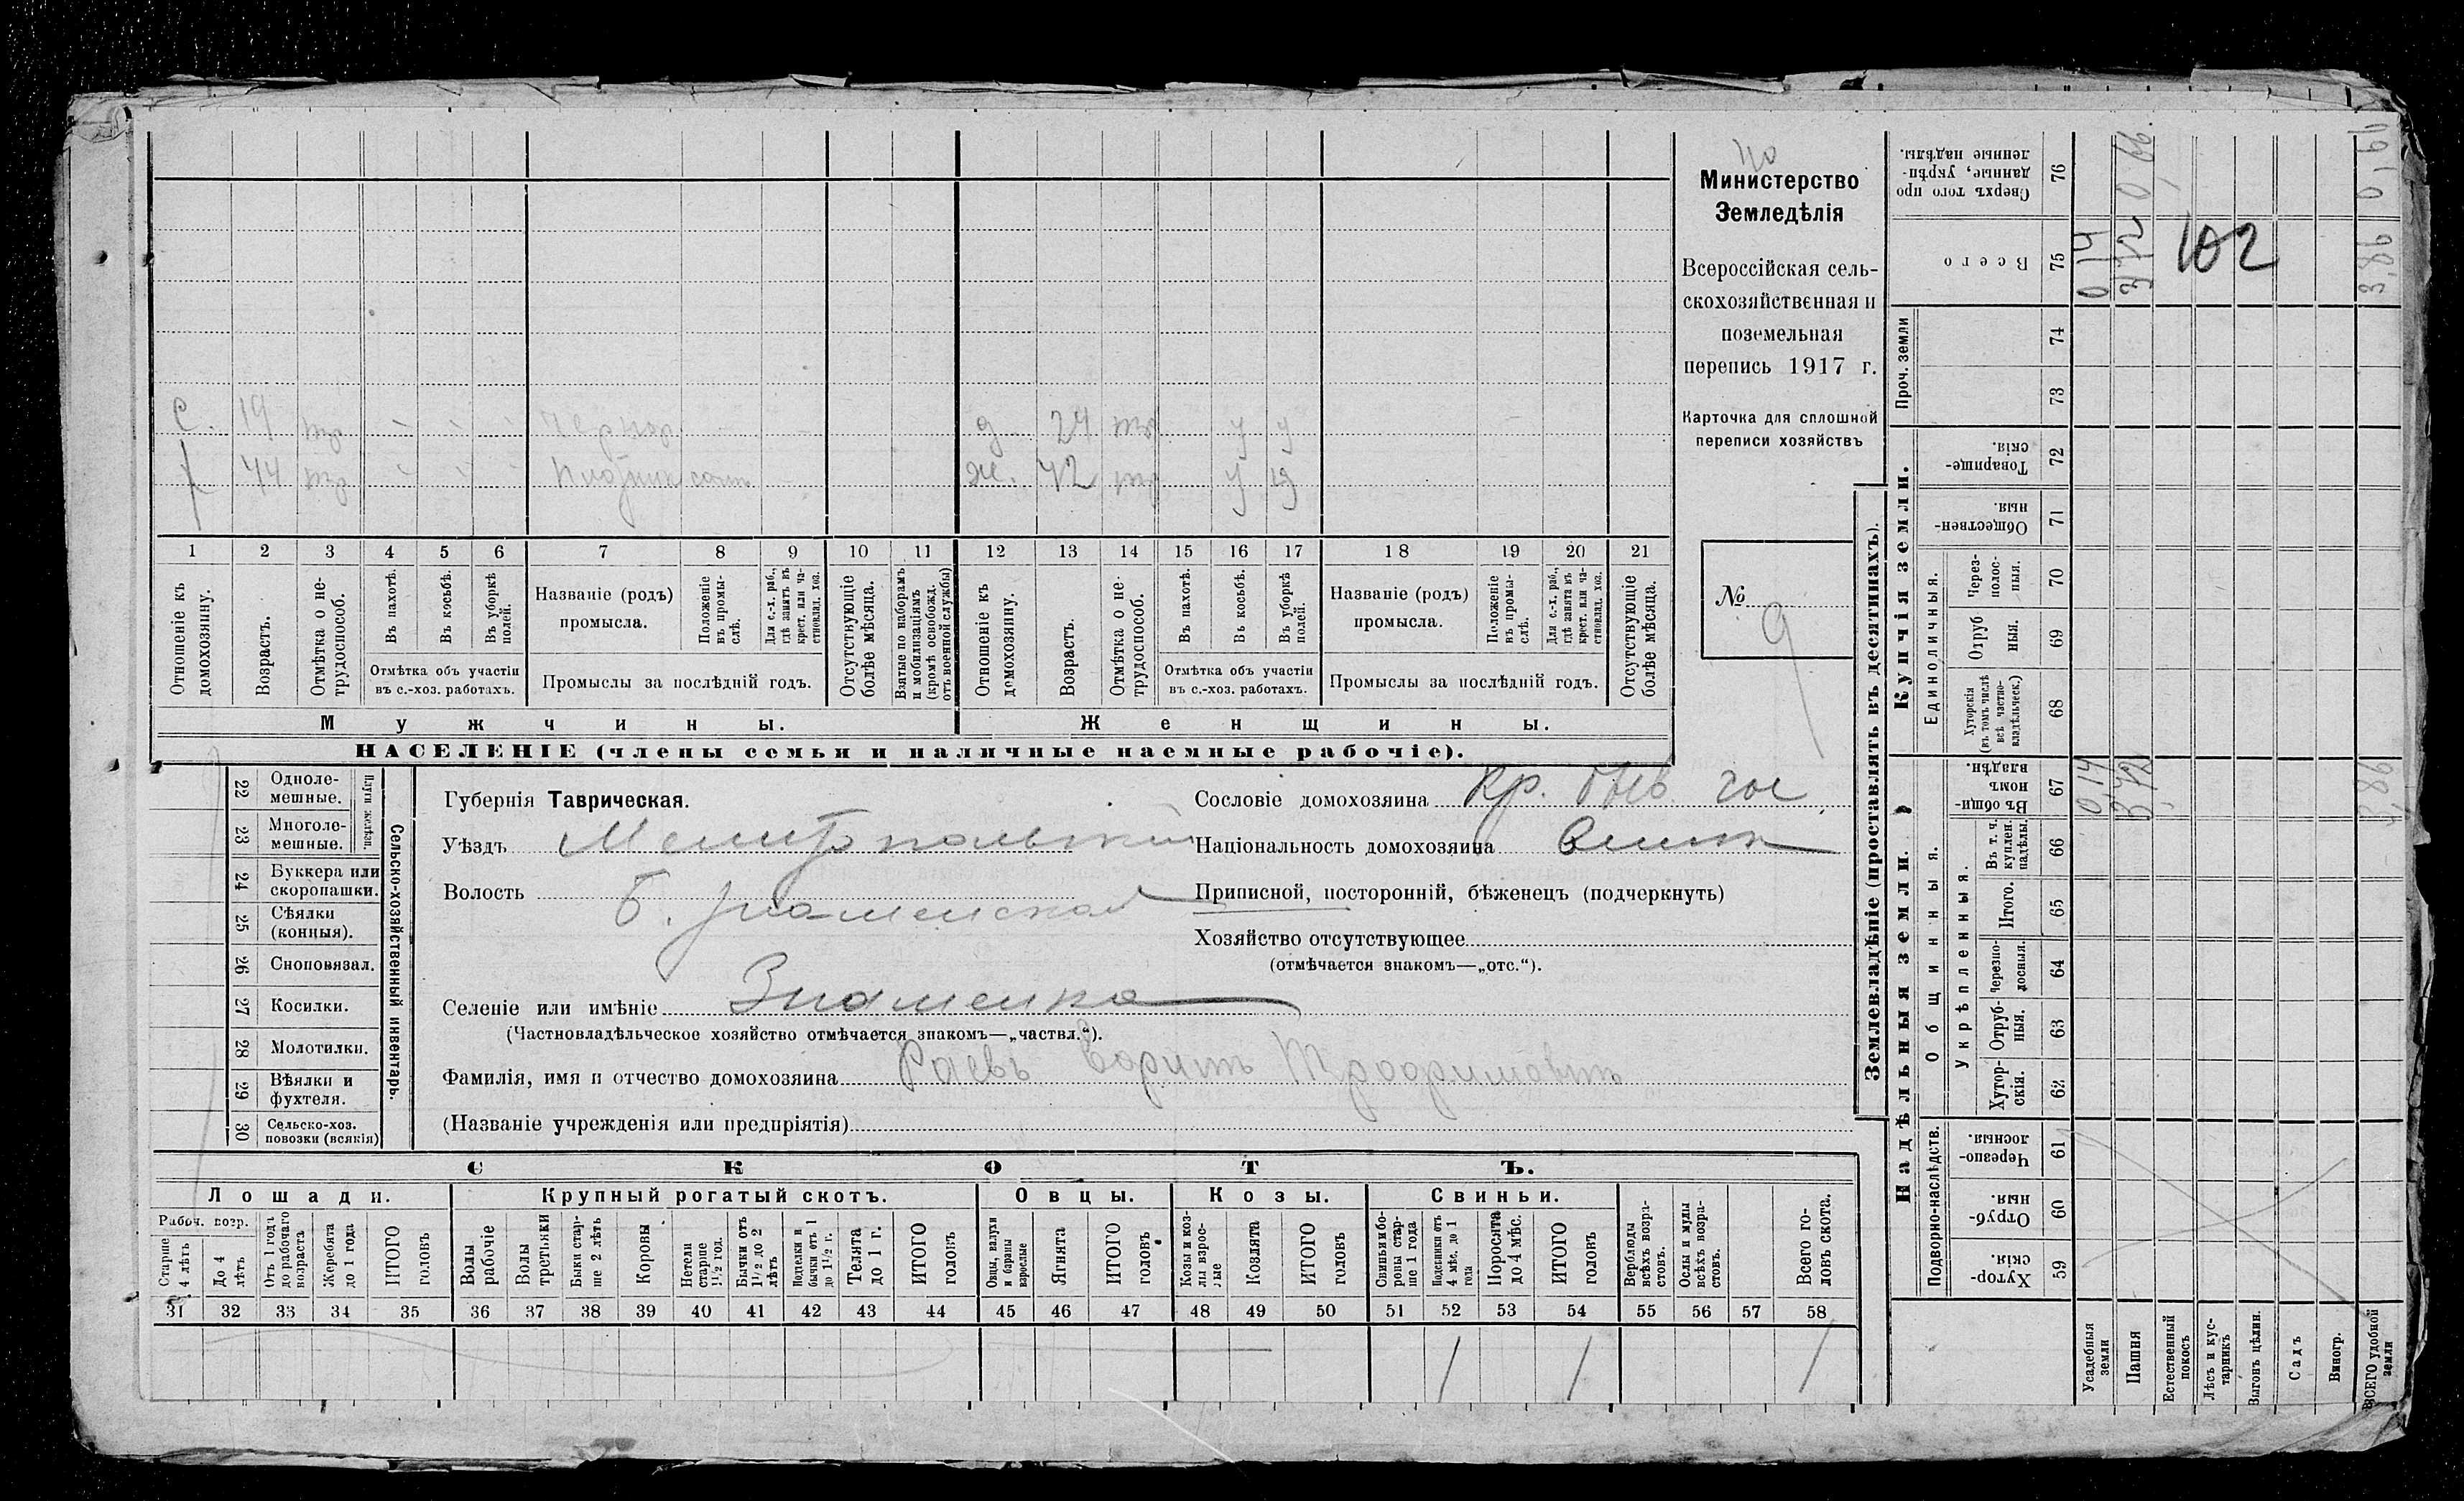 Министерство
Земледѣлія
Всероссійская сель-
скохозяйственная и
поземельная
перепись 1917 г.
Карточка для сплошной
переписи хозяйствъ
№ 9
с. 19 тр
д 24 тр у у
44 тр Плотник
ж. 42 тр у у
1 2 3 4 5 6 7 8 9 10 11 12 13 14 15 16 17 18 19 20 21
Отношеніе къ домохозяину.
Возрастъ.
Отмѣтка о не-трудоспособ.
Въ пахотѣ.
Въ косьбѣ.
Въ уборкѣ полей.
Отмѣтка объ участіи
въ с.-хоз. работахъ.
Названіе (родъ)
промысла.
Положеніе въ промы-слѣ.
Для с.-х. раб., гдѣ занятъ въ крест. или ча-стновлад. хоз.
Промыслы за послѣдній годъ.
Отсутствующіе болѣе мѣсяца.
Взятые по наборамъ и мобилизаціямъ (кромѣ освобожд. отъ военной службы)
Отношеніе къ домохозяину.
Возрастъ.
Отмѣтка о не-трудоспособ.
Въ пахотѣ.
Въ косьбѣ.
Въ уборкѣ полей.
Отмѣтка объ участіи
въ с.-хоз. работахъ.
Названіе (родъ)
промысла.
Положеніе въ промы-слѣ.
Для с.-х. раб., гдѣ занята въ крест. или ча-стновлад. хоз.
Промыслы за послѣдній годъ.
Отсутствующіе болѣе мѣсяца.
Мужчины.
Женщины.
НАСЕЛЕНІЕ (члены семьи и наличные наемные рабочіе).
22 Одноле-мешные.
23 Многоле-мешные.
Плуги желѣзн.
24 Буккера или скоропашки.
25 Сѣялки (конныя).
26 Сноповязал.
27 Косилки.
28 Молотилки.
29 Вѣялки и фухтеля.
30 Сельско-хоз. повозки (всякія)
Сельско-хозяйственный инвентарь.
Губернія Таврическая.
Уѣздъ Мелитопольский
Волость Б. Знаменская
Селеніе или имѣніе Знаменка
(Частновладѣльческое хозяйство отмѣчается знакомъ—„частвл.“).
Фамилія, имя и отчество домохозяина Раевъ
(Названіе учрежденія или предпріятія)
Сословіе домохозяина Кр. быв. гос.
Національность домохозяина
Приписной, посторонній, бѣженецъ (подчеркнуть)
Хозяйство отсутствующее
(отмѣчается знакомъ—„отс.“).
СКОТЪ.
Лошади.
Крупный рогатый скотъ.
Овцы.
Козы.
Свиньи.
Рабоч. возр.
Старше 4 лѣтъ
До 4 лѣтъ
Отъ 1 года до рабочаго возраста
Жеребята до 1 года
ИТОГО головъ
Волы рабочіе
Волы третьяки
Быки стар-ше 2 лѣтъ
Коровы
Нетели старше 1½ год.
Бычки отъ 1½ до 2 лѣтъ
Подтелки и бычки отъ 1 до 1½ г.
Телята до 1 г.
ИТОГО головъ
Овцы, валухи и бараны взрослые
Ягнята
ИТОГО головъ
Козы и коз-лы взрос-лые
Козлята
ИТОГО головъ
Свиньи и бо-ровы стар-ше 1 года
Подсвинки отъ 4 мѣс. до 1 года
Поросята до 4 мѣс.
ИТОГО головъ
Верблюды всѣхъ возра-стовъ.
Ослы и мулы всѣхъ возра-стовъ.
Всего го-ловъ скота.
31 32 33 34 35 36 37 38 39 40 41 42 43 44 45 46 47 48 49 50 51 52 53 54 55 56 57 58
1 1 1
Землевладѣніе (проставлять въ десятинахъ).
Купчія земли.
Сверхъ того про данные, укрѣп-ленные надѣлы. 76
Всего 75
Проч. земли 74 73
Товарище-скія. 72
Обществен-ныя. 71
Единоличныя.
Через-полос-ныя. 70
Отруб ныя. 69
Хуторскія (въ томъ числѣ всѣ частно-владѣльческ.) 68
Надѣльныя земли.
Общинныя.
Въ общи-номъ владѣн. 67
Укрѣпленныя.
Въ т. ч. куплен. надѣлы. 66
Итого. 65
Черезпо-лосныя. 64
Отруб-ныя. 63
Хутор-скія. 62
Подворно-наслѣдств.
Черезпо-лосныя. 61
Отруб-ныя. 60
Хутор-скія. 59
Усадебныя земли
Пашня
Естественный покосъ
Лѣсъ и кус-тарникъ
Выгонъ цѣлин.
Садъ
Виногр.
ВСЕГО удобной земли
0,14 3,72 3,86
0 14 3 72 3,86
102